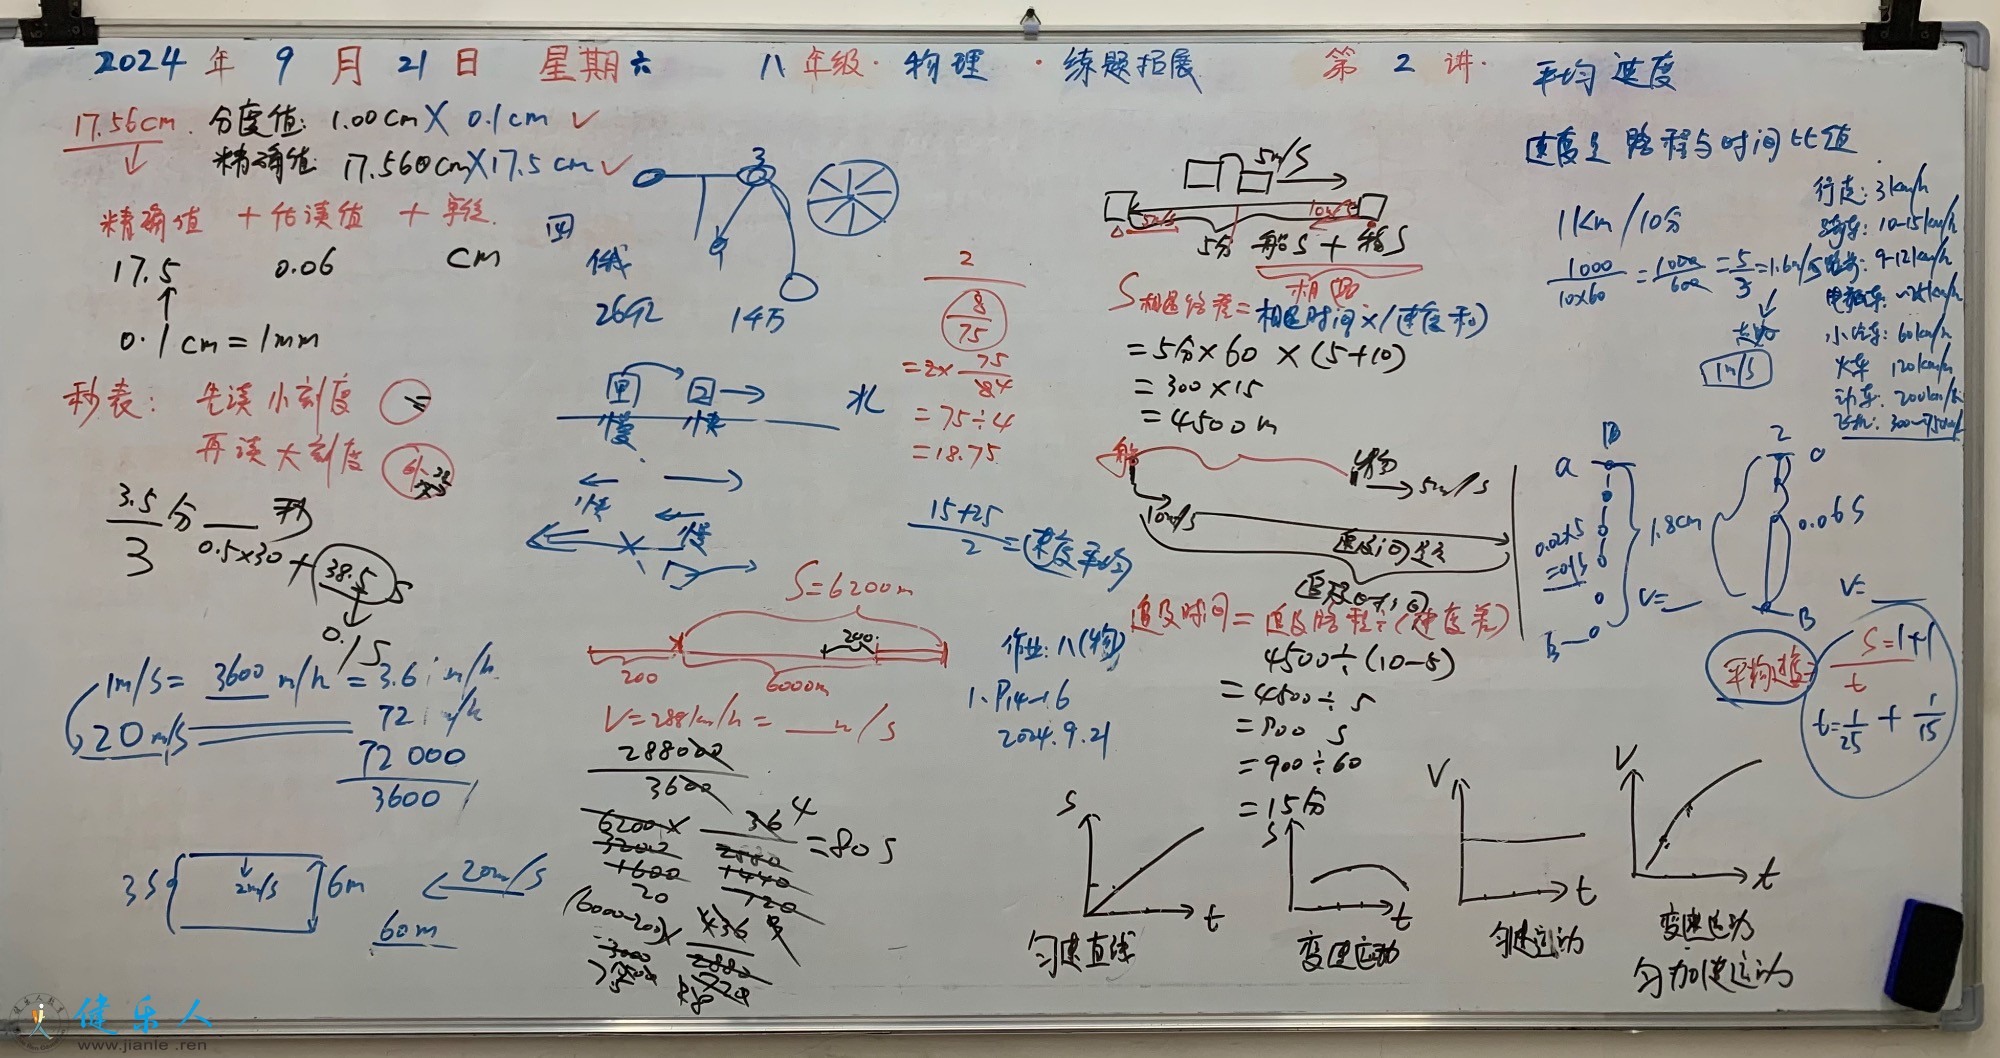 2024 年 9 月 21 日 星期六 八年级·物理·练题拓展 第 2 讲· 平均速度
17.56cm. 分度值: 1.00cm X 0.1cm ✓
精确值: 17.560cm X 17.5cm ✓
精确值 + 估读值 + 单位.
17.5 0.06 cm
0.1cm = 1mm
秒表: 先读小刻度
再读大刻度
3.5 分 秒
3 0.5×30 + 38.5 S
0.1S
1m/s = 3600 m/h = 3.6
20m/s 72
72000
3600
3S 2m/s 6m 20m/s
60m
3
俄
14万
慢 快 北
快
慢
S=6200m
200
200 6000m
V=288km/h = __m/s
288000
3600
6200 × 36 4 = 80s
3200 2880
1600 1440
20 720
(6000-200)× 36
3000 2880
2
8
75
=2×75
84
=75÷4
=18.75
15+25
2 =速度平均
作业: 八(物)
1. P14-16
2024.9.21
5m/s
5m/s 10m/s
5分 船S + 箱S
相遇
S相遇路程=相遇时间×(速度和)
=5分×60×(5+10)
=300×15
=4500m
船 物
5m/s
10m/s
追及时间
追及时间=追及路程÷(速度差)
4500÷(10-5)
=4500÷5
=900 S
=900÷60
=15分
S t
匀速直线
S t
变速运动
V t
匀速运动
V t
变速运动
匀加速运动
速度是路程与时间比值.
1km/10分
1000 = 1000 = 5 = 1.6m/s
10×60 600 3
走路
1m/s
行走: 3km/h
骑车: 10-15km/h
跑步: 9-12km/h
电动车: ~25km/h
小汽车: 60km/h
火车 120km/h
动车: 200km/h
飞机: 300-950km/h
a
0.02×5
=0.1S
1.8cm
V=__
B
0.06S
B
V=__
平均速度= S=1+1
t
t= 1 + 1
25 15
健乐人
www.jianle.ren